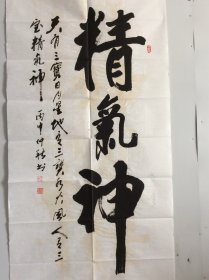 精氣神
天有三寶日月星地有三寶水火風人有三
宝精氣神
丙申仲秋书